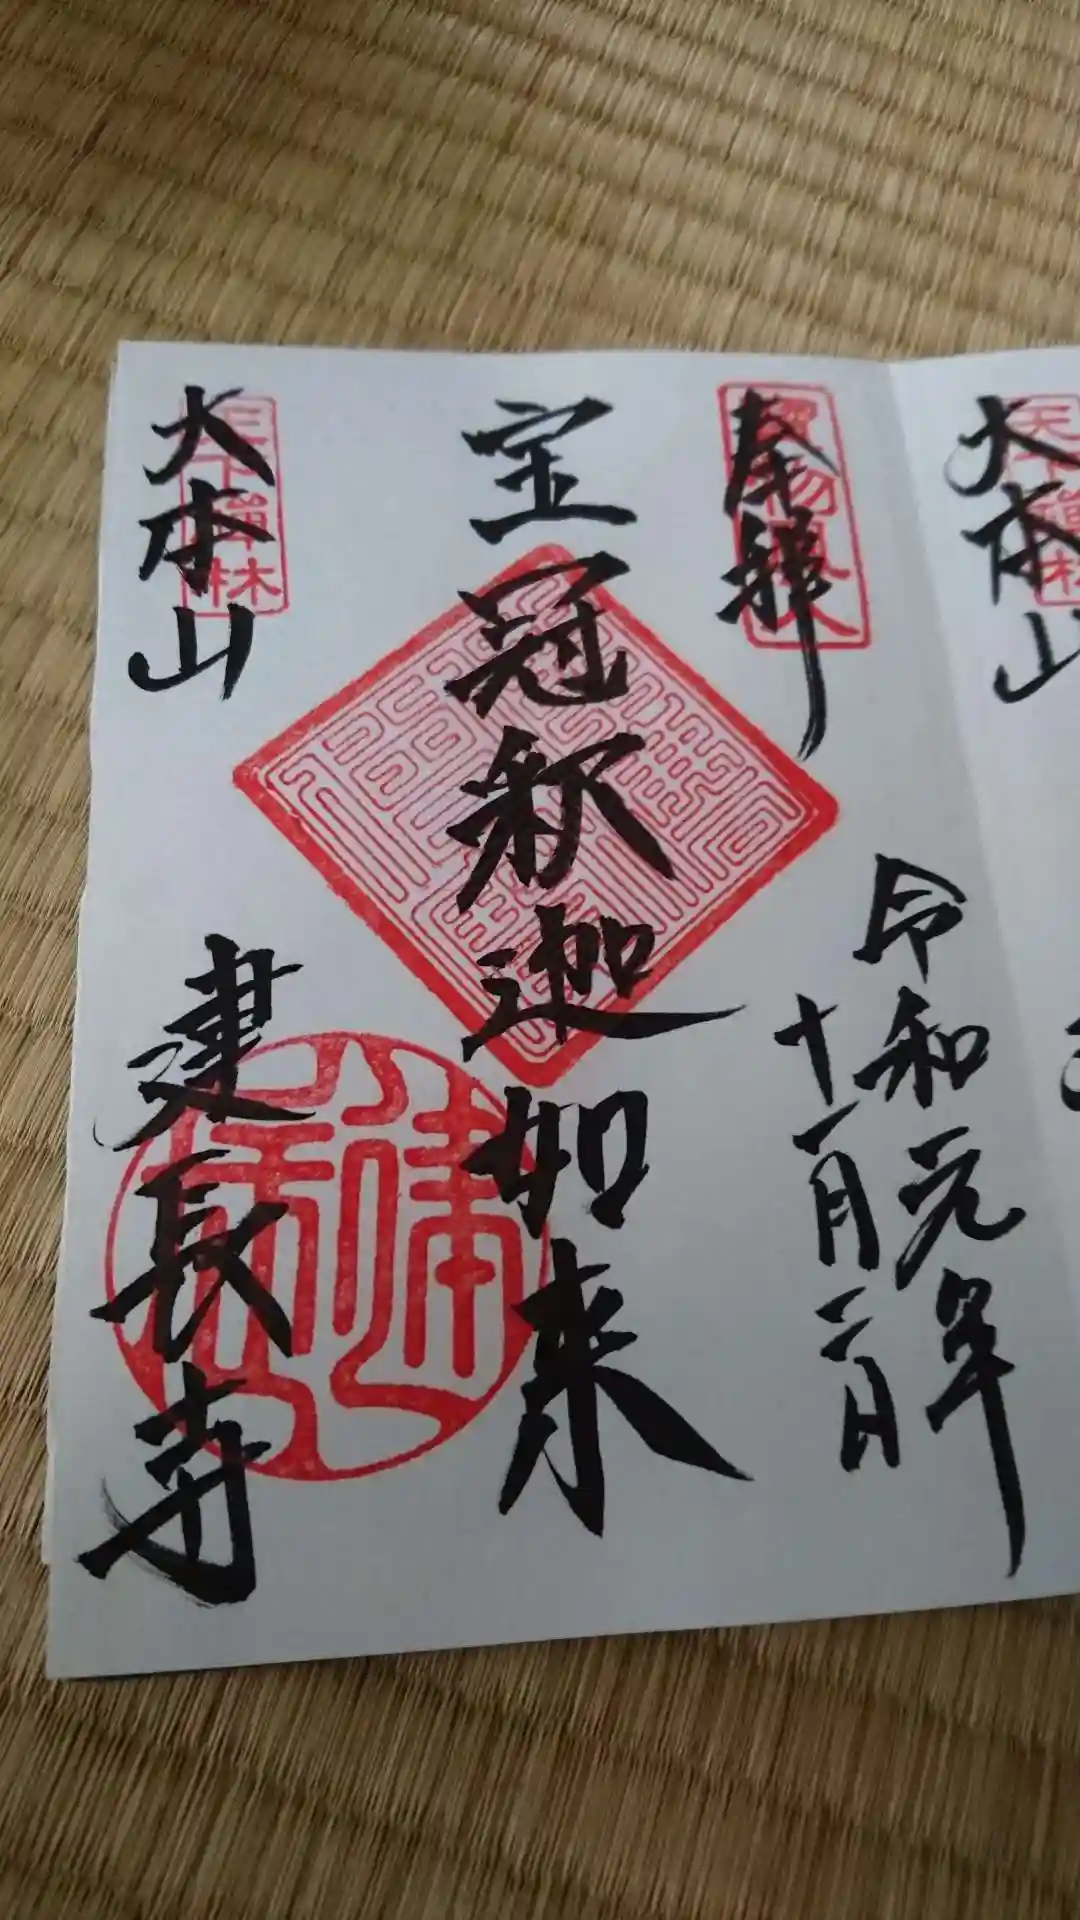 大本山
奉拝
令和元年
十一月二日
宝冠釈迦如来
大本山
天下禅林
建長寺